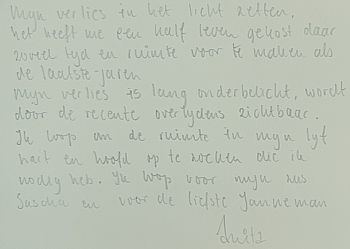 Mijn verlies in het licht zetten.
het heeft me een half leven gekost daar
zoveel tijd en ruimte voor te maken als
de laatste jaren
Mijn verlies is lang onderbelicht, wordt
door de recente overlijdens zichtbaar.
Ik loop om de ruimte in mijn lijf
hart en hoofd op te zoeken die ik
nodig heb. Ik loop voor mijn zus
Sascha en voor de liefste Janneman